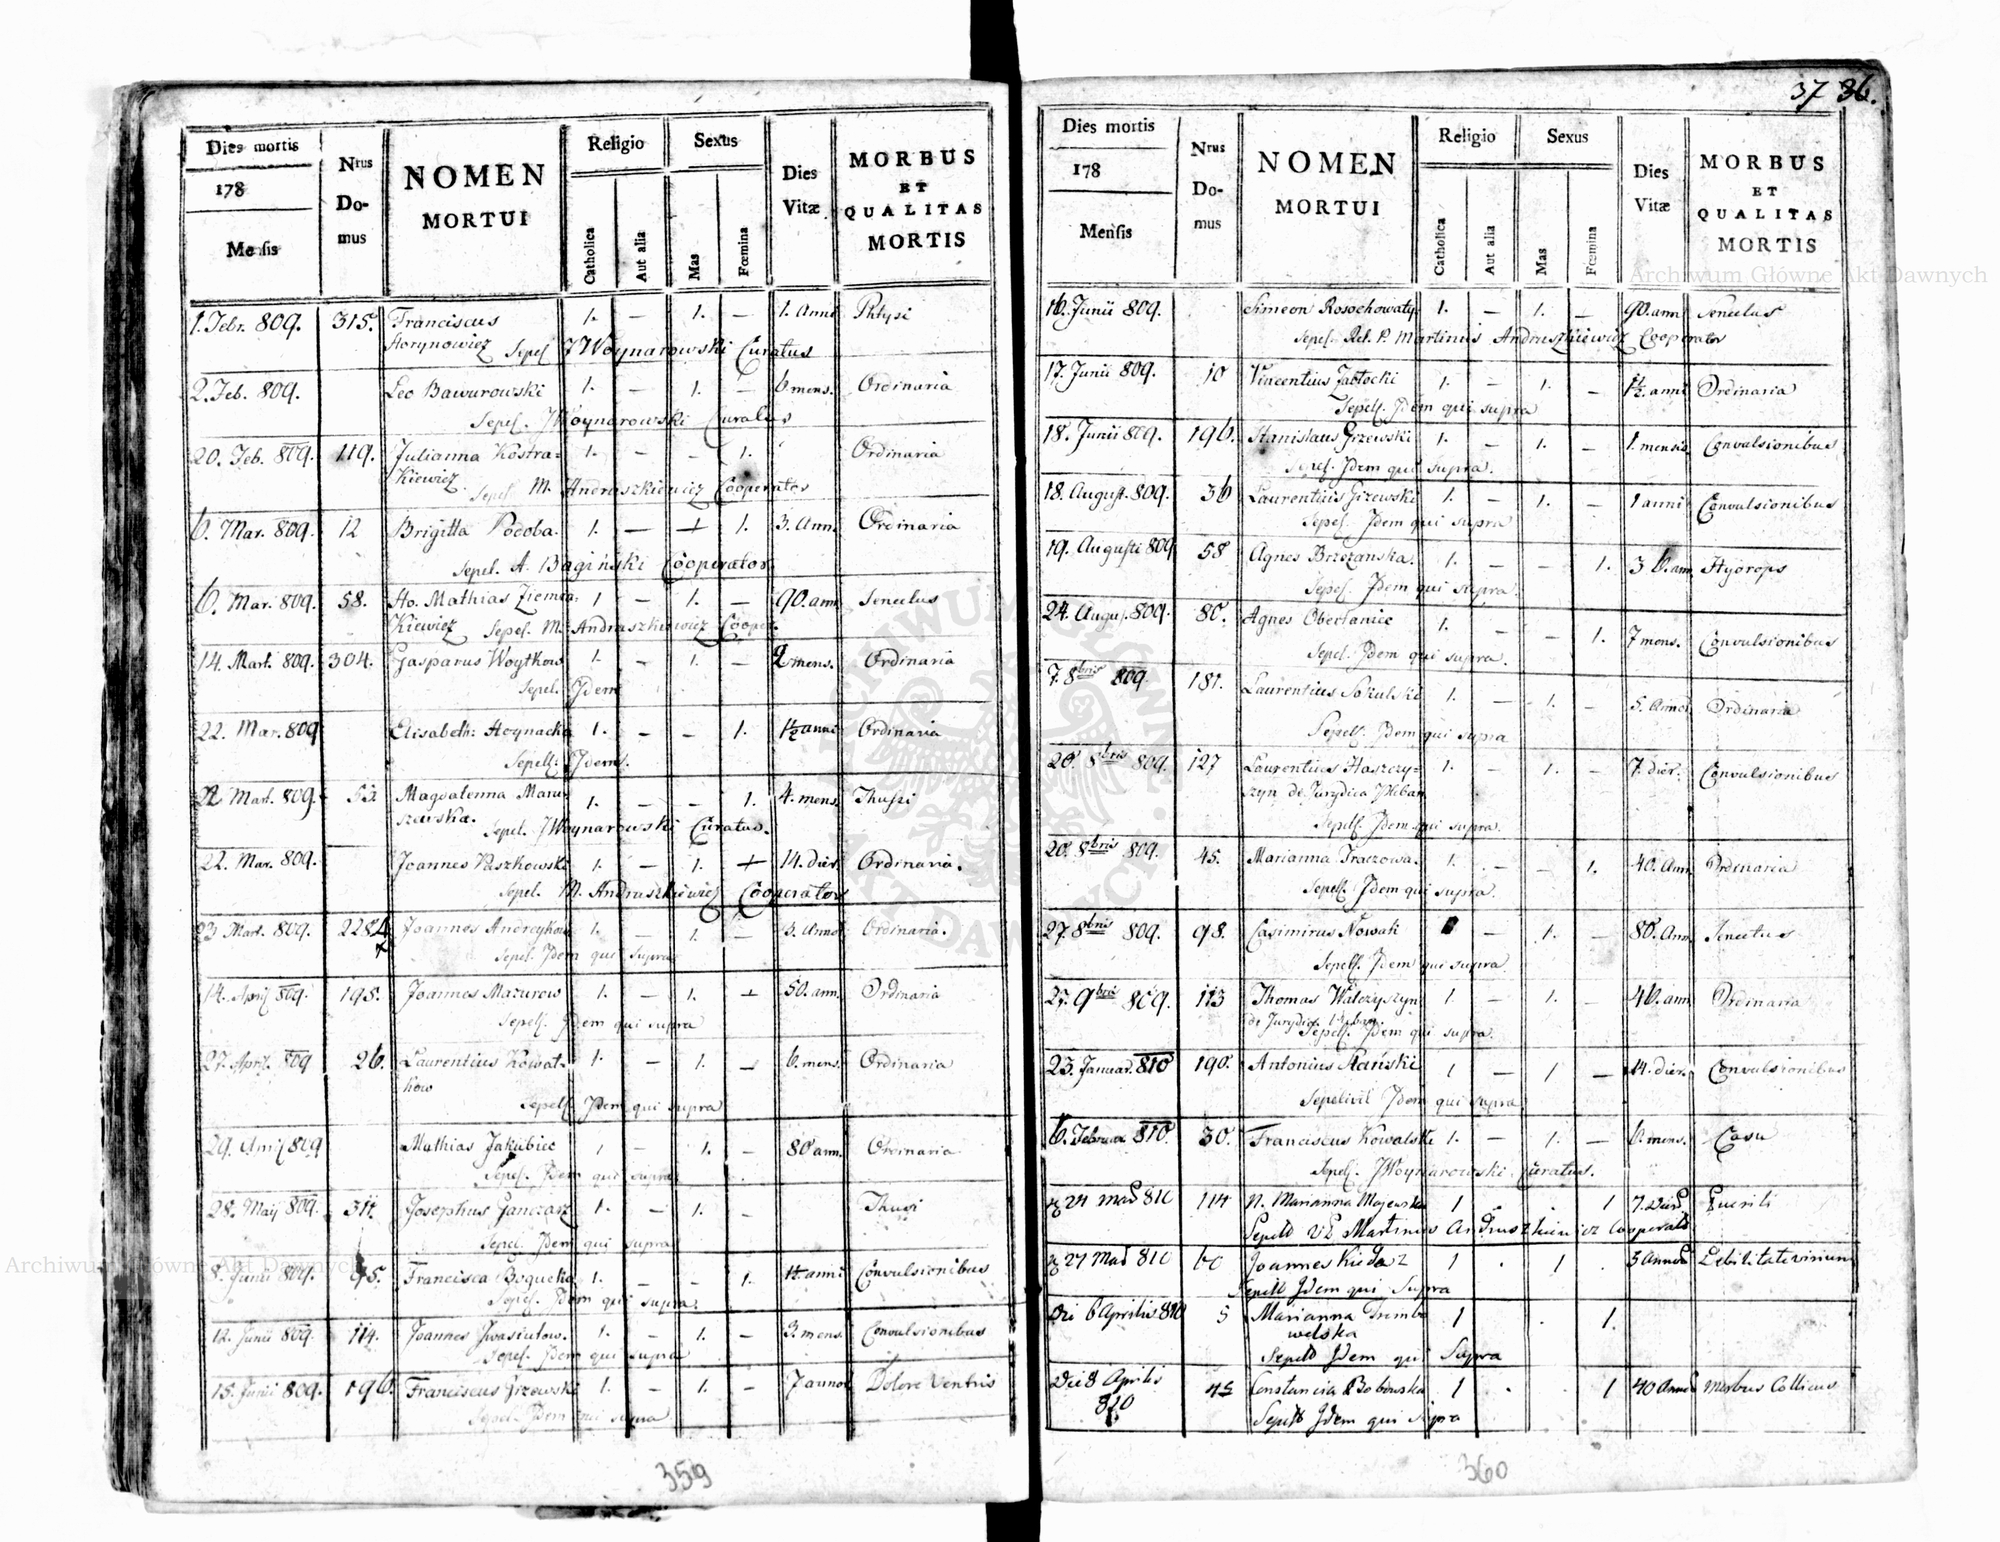 Dies mortis
178
Mensis
Nrus
Do-
mus
NOMEN
MORTUI
Religio
Catholica
Aut alia
Sexus
Mas
Fœmina
Dies
Vitæ
MORBUS
ET
QUALITAS
MORTIS
1. Febr. 809. 315. Franciscus 1. — 1. — 1. Anni Phtysi
Horynowicz Sepel JWoynarowski Curatus
2. Feb. 809. Leo Bawurowski 1. — 1. — 6 mens. Ordinaria
Sepel. JWoynarowski Curatus
20. Feb. 809. 119. Julianna Kostra= 1. — — 1. Ordinaria
Kiewicz Sepel M. Andruszkiewicz Cooperator
6. Mar. 809. 12 Brigitta Podoba. 1. — + 1. 3. Ann. Ordinaria
Sepel. A. Bagiński Cooperator
6. Mar. 809. 58. Mathias Ziemia 1 — 1. — 90. ann Senectus
Kiewicz Sepel. M. Andruszkiewicz Cooper.
14. Mart. 809. 304. Gasparus Woytkow 1. — 1. — 2 mens. Ordinaria
Sepel. Jdem
22. Mar. 809 Elisabeth: Hoynacka 1. — — 1. 1½ anni Ordinaria
Sepell: Jdem.
22 Mart. 809. Magdalenna 1. — — 1. 4. mens. Thussi
Sepel. JWoynarowski Curatus.
22. Mar. 809. Joannes Paszkowski 1. — 1. + 14. dier. Ordinaria.
Sepel. M. Andruszkiewicz Cooperator
23 Mart. 809. Joannes Andreykow 1. — 1. — 3. Anno Ordinaria.
Sepel. Jdem qui supra
14. April 809. 195. Joannes Mazurow 1. — 1. + 50. ann. Ordinaria
Sepell. Jdem qui supra
27. April. 809 26. Laurentius Kowal= 1. — 1. — 6. mens. Ordinaria
kow
Sepell. Jdem qui supra
29. April 809 Mathias Jakubiec 1 — 1. — 80 ann. Ordinaria
Sepel. Jdem qui supra
28. Maij 809. 311. Josephus Janczarz 1. — 1. — Thussi
Sepel. Jdem qui supra
8. Junii 809. 95. Francisca 1. — — 1. 1½ anni Convulsionibus
Sepel. Jdem qui supra.
12. Junii 809. 114. Joannes Jwasiutow. 1. — 1. — 3. mens. Convulsionibus
Sepel. Jdem qui supra
15. Junii 809. 196. Franciscus Gizowski 1. — 1. — 7 annor Dolore Ventris
Sepel. Jdem qui supra
359
37 36.
Dies mortis
178
Mensis
Nrus
Do-
mus
NOMEN
MORTUI
Religio
Catholica
Aut alia
Sexus
Mas
Fœmina
Dies
Vitæ
MORBUS
ET
QUALITAS
MORTIS
16. Junii 809. Simeon Rosochowaty 1. — 1. — 90. ann Senectus
Sepel. Rel. P. Martinus Andruszkiewicz Cooperator
17. Junii 809. 10 Vincentius Jabłocki 1. — 1. — 1½. anni Ordinaria
Sepell. Jdem qui supra
18. Junii 809. 196. Stanislaus Grzewski 1. — 1. — 1. mensis Convulsionibus
Sepel. Jdem qui supra.
18. August. 809. 36 Laurentius Gizewski 1. — 1. — 1 anni Convulsionibus
Sepel. Jdem qui supra
19. Augusti 809 58 Agnes Brzezanska. 1. — — 1. 36. ann. Hydrops
Sepel. Jdem qui supra.
24. Augus. 809. 80. Agnes Obertaniec 1. — — 1. 7 mens. Convulsionibus
Sepel. Jdem qui supra.
7. 8bris 809. 181. Laurentius Sokulski 1. — 1. — 5. Annor Ordinaria
Sepell. Jdem qui supra
20. 8bris 809. 127 Laurentius Haszczy= 1. — 1. — 7. dier. Convulsionibus
szyn de Jurydica Pleban
Sepell. Jdem qui supra.
20. 8bris 809. 45. Marianna Traczowa. 1. — — 1. 40. Ann. Ordinaria
Sepell. Jdem qui supra.
27. 8bris 809. 98. Casimirus Nowak — 1. — 80. Ann Senectus
Sepell. Jdem qui supra
27. 9bris 809. 113 Thomas Walczyszyn 1. — 1. — 46. ann Ordinaria
de Jurydica Pleban.
Sepell. Jdem qui supra.
23. Januar. 810 190. Antonius Stański 1 — 1 — 14. dier. Convulsionibus
Sepelivit Jdem qui supra
6. Februar 810. 30. Franciscus Kowalski 1. — 1. — 6. mens. Casu
Sepel. JWoynarowski Curatus.
24 mar 810 114 N. Marianna Majewska 1 . 1 7. Dier Puerili
Sepelt Martinus Andruszkiewicz Cooperator
27 Mar 810 Joannes Kiedacz 1 . 1 . 3 Annor Debilitate virium
Sepelt Jdem qui Supra
Die 6 Aprilis 810 5 Marianna Trembo 1 . 1.
welska
Sepelt Jdem qui Supra
Die 8 Aprilis 45 Constancia Bobowska 1 . . 1 40 Annor morbus Collicus
810
Sepelt Jdem qui supra
360
Archiwum Główne Akt Dawnych
Archiwum Główne Akt Dawnych
ARCHIWUM GŁÓWNE AKT DAWNYCH